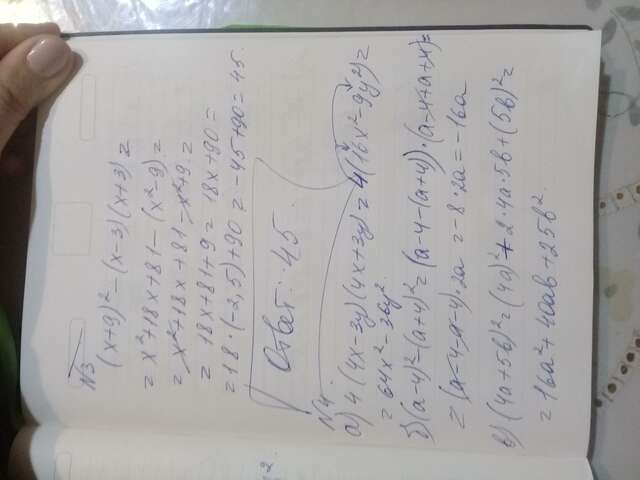 N3
(x+9)² - (x-3)(x+3) =
= x²+18x+81-(x²-9) =
= x²+18x+81-x²+9 =
= 18x+81+9 = 18x+90 =
= 18·(-2,5)+90 = -45+90=45.
Ответ: 45.
N4.
а) 4(4x-3y)(4x+3y) = 4(16x²-9y²) =
= 64x²-36y².
б) (a-4)²-(a+4)² = (a-4-(a+4))·(a-4+a+4)=
= (a-4-a-4)·2a = -8·2a = -16a
в) (4a+5b)² = (4a)²+2·4a·5b+(5b)² =
= 16a²+40ab+25b².
2.